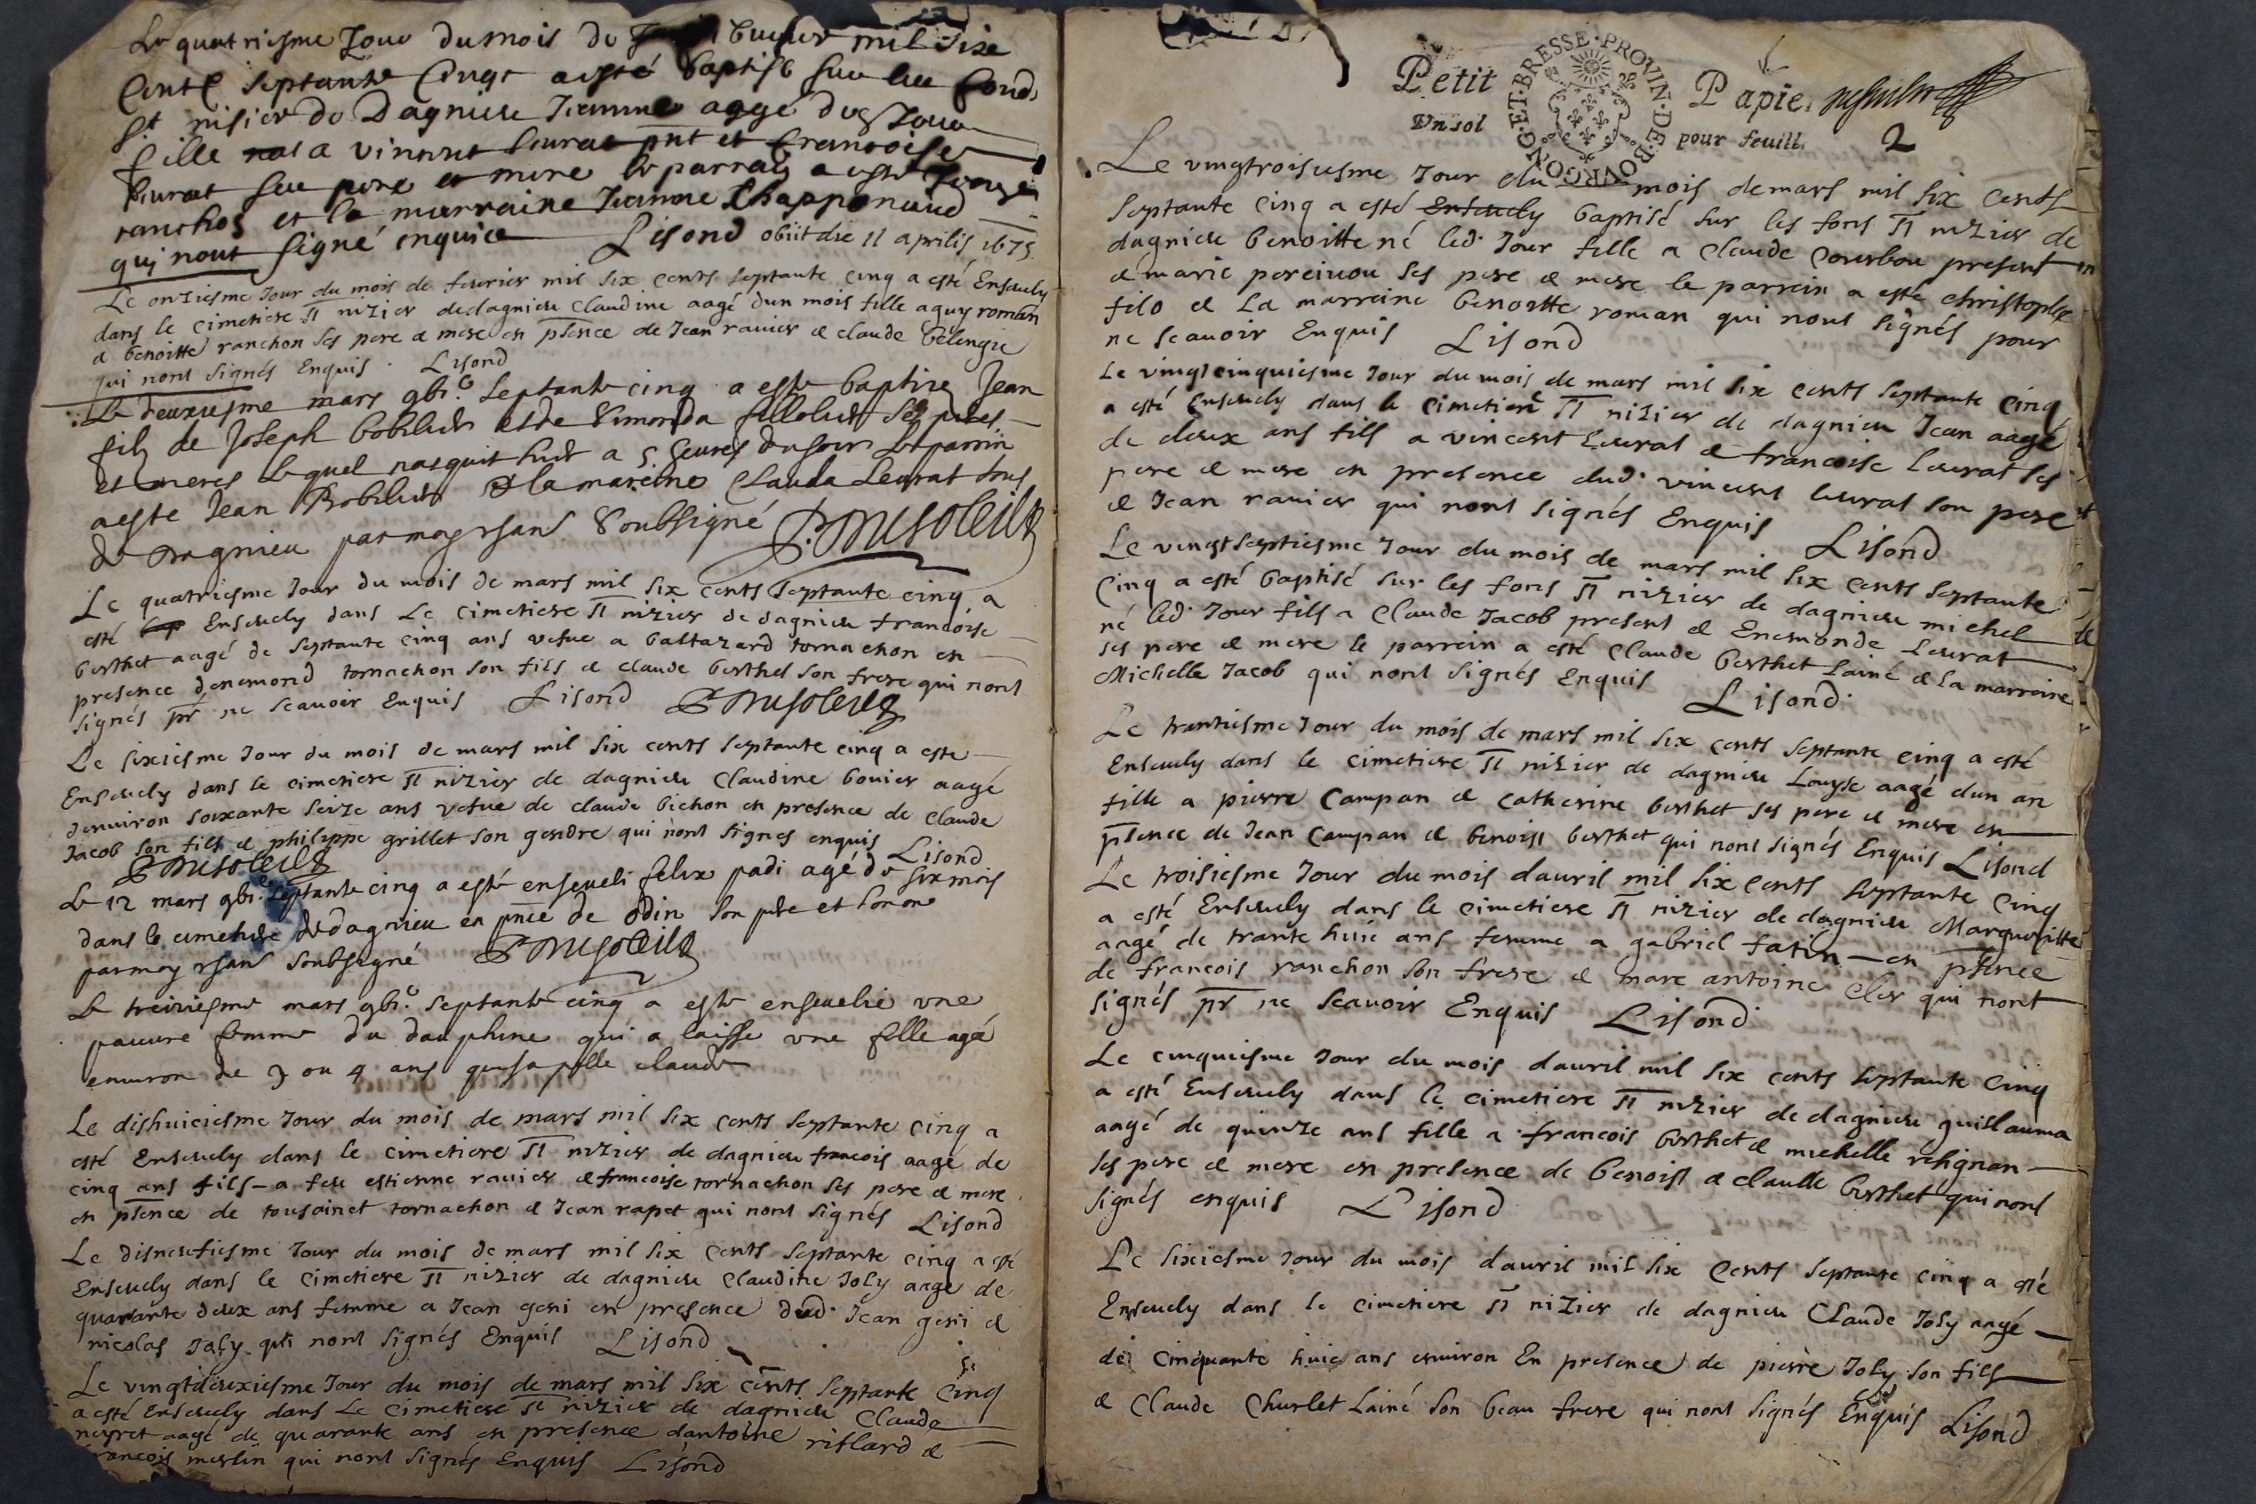 Le quatriesme Jour du mois de feburier mil sixe
Cents septante Cinqt a esté baptisé sur les fonds
St nisier de Dagnieu Jeanne aagé des Jour
fille a vincent leurat pnt et francoise
leurat ses pere et mere le parrain a esté
ranchos et la marraine Jeanne Chapponaud
qui nont signé enquice Lisond obiit die 11 aprilis 1675
Le onziesme Jour du mois de feurier mil six cents septante cinq a esté Enseuely
dans le cimetiere St nizier de dagnieu Claudine aagé dun mois fille a guy roman
& benoitte ranchon ses pere & mere en pſence de Jean rauier & claude belengie
qui nont signés Enquis. Lisond
Le deuxiesme mars gbi.c septante cinq a este baptize Jean
filz de Joseph bobilier et de Simonda ses peres
et meres lequel nasquit hier a 5 heures du soir Le parrin
a este Jean Bobilier & la mareine Clauda Leurat tous
de Dagnieu par moy soubsigné
Le quatriesme Jour du mois de mars mil six cents septante cinq a
esté Enseuely dans Le cimetiere St nizier de dagnieu francoise
berthet aagé de septante cinq ans vefue a baltazard tornachon en
presence denemond tornachon son fils & claude berthet son frere qui nont
signés pr ne scauoir Enquis Lisond
Le sixiesme Jour du mois de mars mil six cents septante cinq a este
Enseuely dans le cimetiere St nizier de dagnieu Claudine bouier aagé
denuiron soixante seize ans vefue de claude bichon en presence de Claude
Jacob son fils & philippe grillet son gendre qui nont signes enquis Lisond
Le 12 mars gbi.c septante cinq a esté enseueli felix padi agé de six mois
dans le cimetiere de dagnieu en pnce de odin son pere et
par moy soubsigné
Le treiziesme mars gbi.c septante cinq a este enseuelie vne
pauure femme du dauphine qui a laisse vne fille agé
enuiron de 3 ou 4 ans claude
Le dishuiciesme Jour du mois de mars mil six cents septante cinq a
esté Enseuely dans le cimetiere St nizier de dagnieu francois aagé de
cinq ans fils a feu estienne rauier & francoise tornachon ses pere & mere
en pſence de tousainct tornachon & Jean rapet qui nont signés Lisond
Le disneufiesme Jour du mois de mars mil six cents septante cinq a esté
Enseuely dans le cimetiere St nizier de dagnieu Claudine Joly aagé de
quarante deux ans femme a Jean geni en presence dud. Jean geni &
nicolas Joly qui nont signés Enquis Lisond
Le vingtdeuxiesme Jour du mois de mars mil six cents septante cinq
a esté Enseuely dans Le cimetiere St nizier de dagnieu Claude
neyret aagé de quarante ans en presence dantoine riflard &
francois merlin qui nont signés Enquis Lisond
Petit Papier
Vn sol pour feuill.
BOVRGONG·ET·BRESSE·PROVIN·DE·
2
Le vingtroisiesme Jour du mois de mars mil six cents
septante cinq a esté Enseuely baptisé sur les fons St nizier de
dagnieu benoitte né led. Jour fille a Claude Courbou present
& marie perciuou ses pere & mere le parrein a esté christophle
filo & La marreine benoitte roman qui nont signés pour
ne scauoir Enquis Lisond
Le vingtcinquiesme Jour du mois de mars mil six cents septante cinq
a esté Enseuely dans le cimetiere St nizier de dagnieu Jean aagé
de deux ans fils a vincent leurat & francoise leurat ses
pere & mere en presence dud. vincent leurat son pere
& Jean rauier qui nont signés Enquis Lisond
Le vingtseptiesme Jour du mois de mars mil six cents septante
Cinq a esté baptisé sur les fons St nizier de dagnieu michel
né led. Jour fils a Claude Jacob present & Enemonde Leurat
ses pere & mere le parrein a esté Claude berthet Lainé & La marreine
Michelle Jacob qui nont signés Enquis Lisond
Le trantiesme Jour du mois de mars mil six cents septante cinq a esté
Enseuely dans le cimetiere St nizier de dagnieu Louyse aagé dun an
fille a pierre Campan & Catherine berthet ses pere & mere en
pſence de Jean Campan & benoist berthet qui nont signés Enquis Lisond
Le troisiesme Jour du mois dauril mil six cents septante cinq
a esté Enseuely dans le cimetiere St nizier de dagnieu Margueritte
aagé de trante huic ans femme a gabriel fatin en pſence
de francois ranchon son frere & marc antoine cler qui nont
signés pr ne scauoir Enquis Lisond
Le cinquiesme Jour du mois dauril mil six cents septante cinq
a esté Enseuely dans le cimetiere St nizier de dagnieu guillauma
aagé de quinze ans fille a francois berthet & michelle relignan
ses pere & mere en presence de benoist & claude berthet qui nont
signés enquis Lisond
Le sixiesme Jour du mois dauril mil six cents septante cinq a esté
Enseuely dans le cimetiere St nizier de dagnieu Claude Joly aagé
de cinquante huic ans enuiron En presence de pierre Joly son fils
& Claude Churlet Lainé son beau frere qui nont signés Enquis Lisond